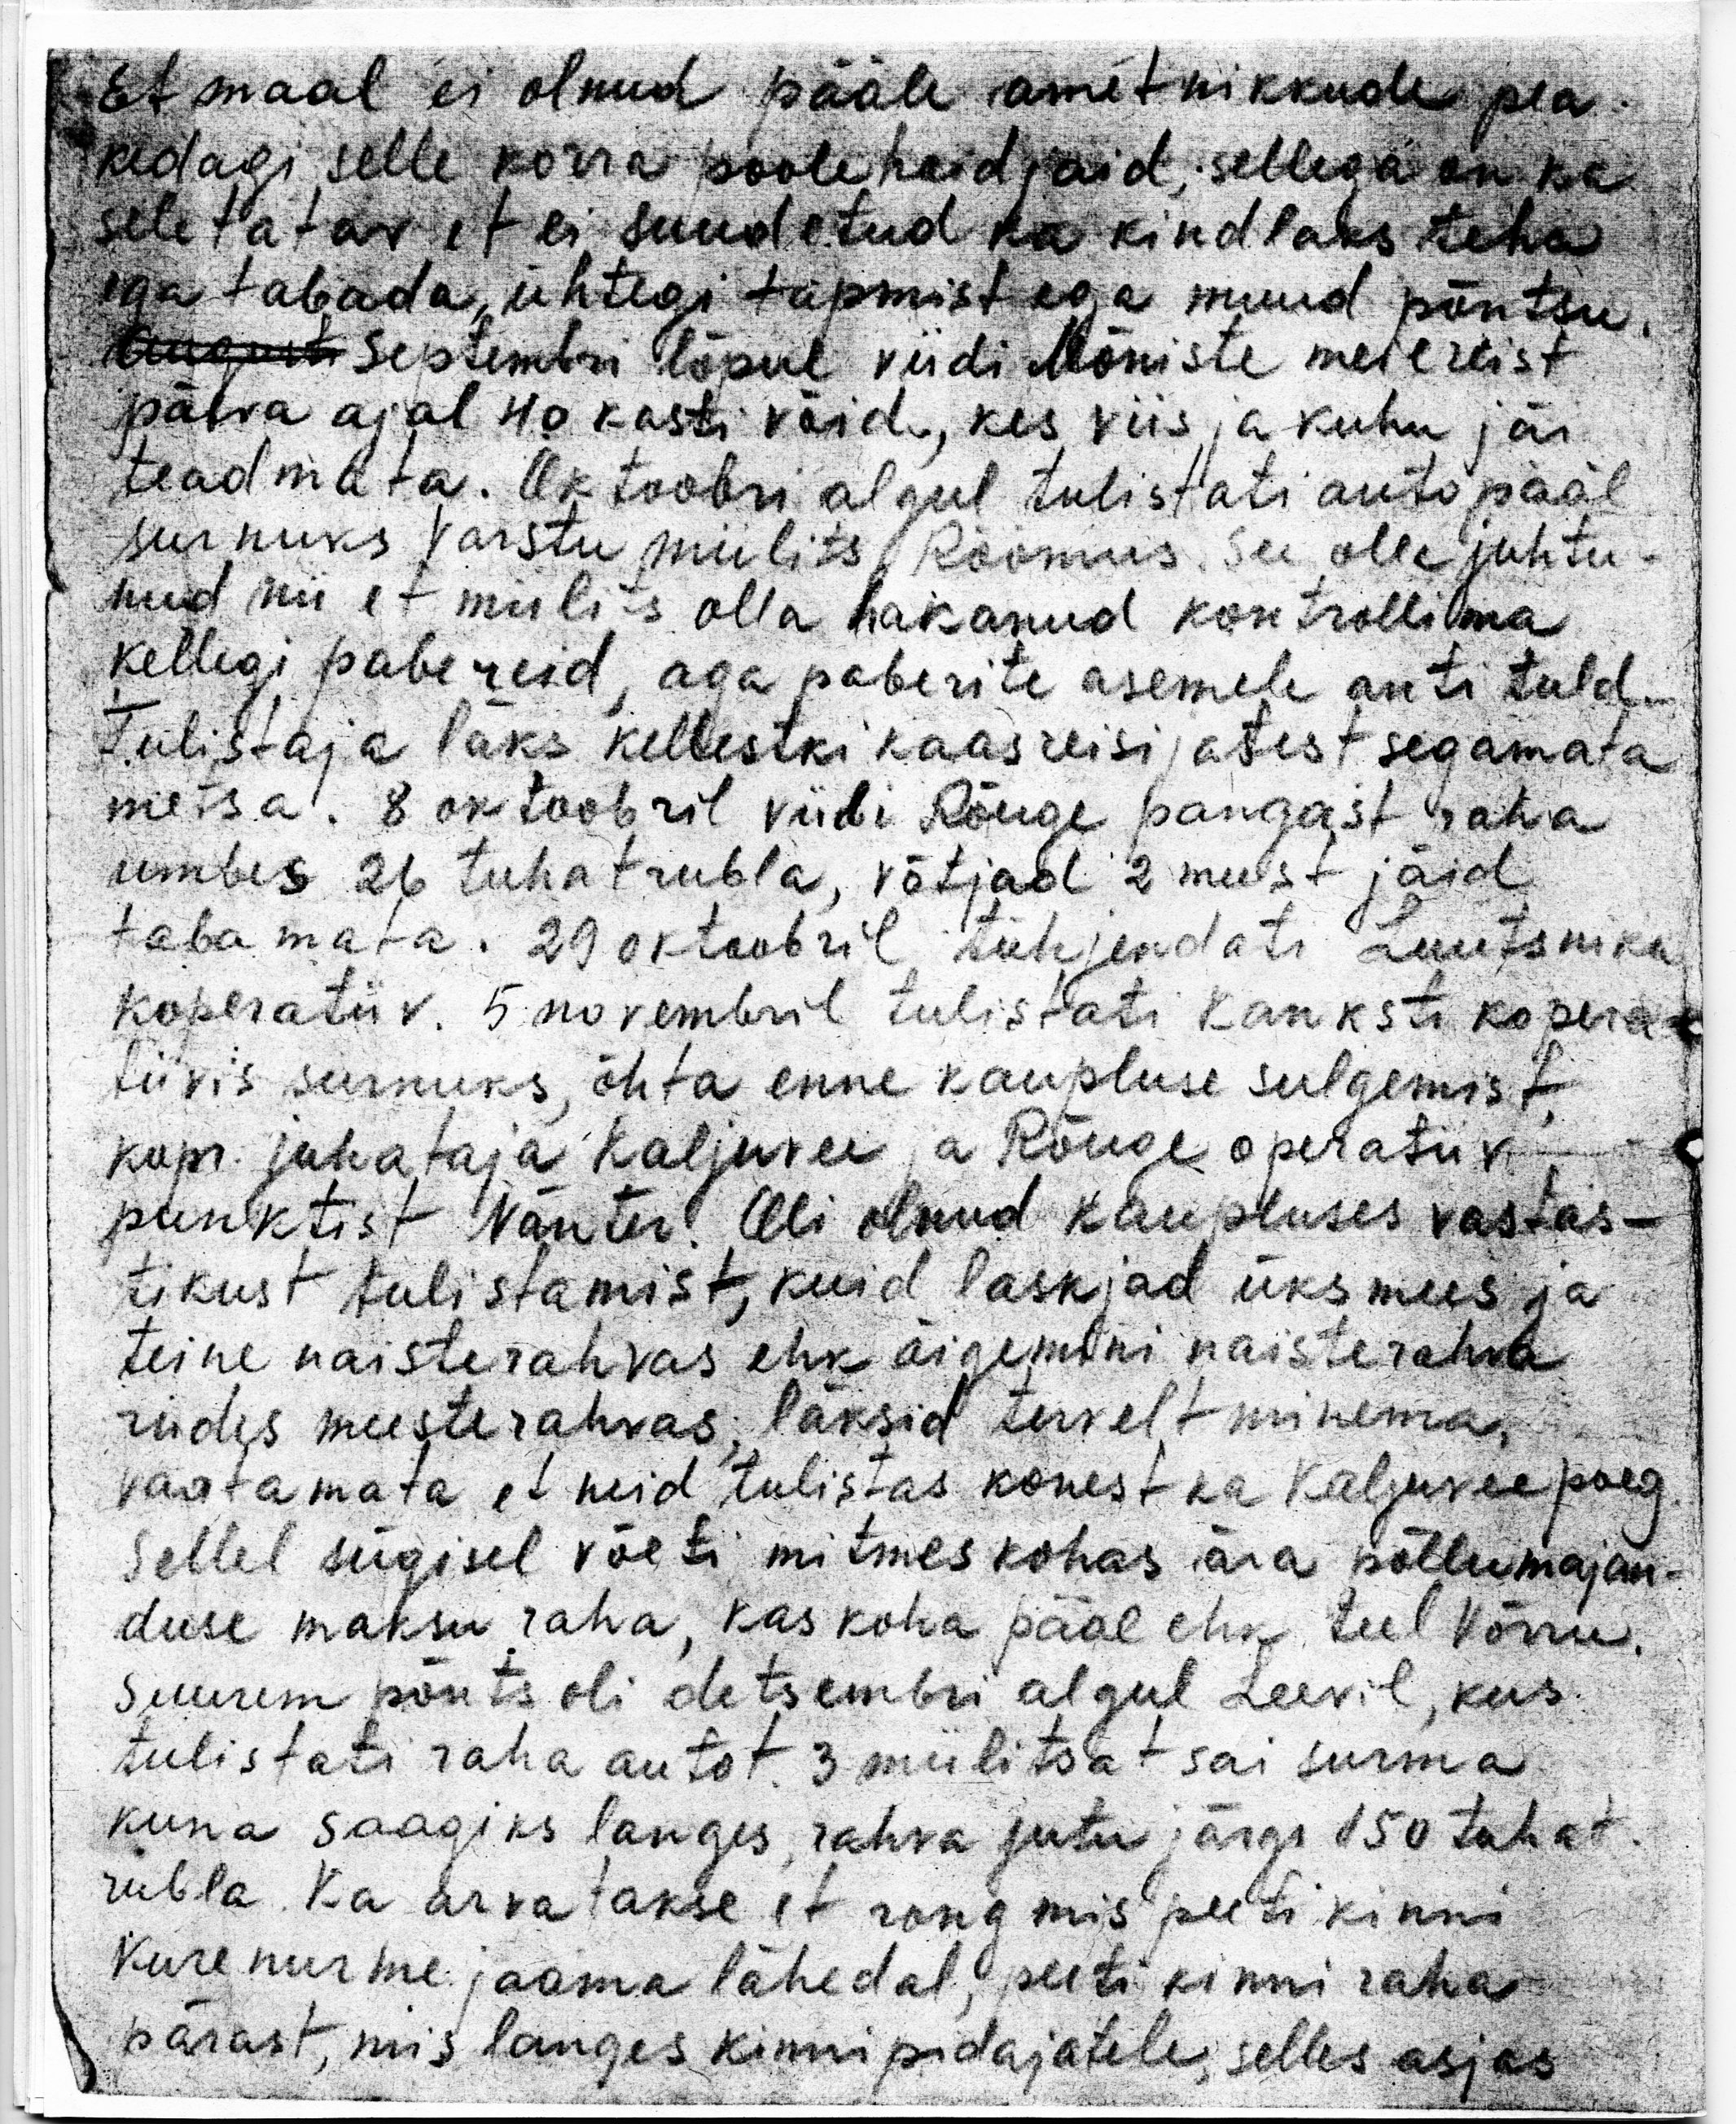 Et maal ei olnud pääle ametnikkude pea
kedagi selle korra poolehoidjaid, sellega on ka
seletatav et ei suudetud ka kindlaks teha
ega tabada, ühtegi tapmist ega muud põntsu.
Augusti Septembri lõpul viidi Mõniste meiereist
päeva ajal 40 kasti võid, kes viis ja kuhu jäi
teadmata. Oktoobri algul tulistati auto pääl
surnuks Varstu miilits Rõõmus. See olle juhtu-
nud nii et miilits olla hakanud kontrollima
kellegi pabereid, aga paberite asemele anti tuld.
Tulistaja läks kellestki kaasreisijatest segamata
metsa. 8 oktoobril viidi Rõuge pangast raha
umbes 26 tuhat rubla, võtjad 2 meest jäid
tabamata. 29 oktoobril tühjendati Luutsnika
koperatiiv. 5 novembril tulistati Kanksti kopera-
tiivis surnuks, õhta enne kaupluse sulgemist,
kopr. juhataja Kaljuvee ja Rõuge operatiiv
punktist Vänter. Oli olnud kaupluses vastas-
tikust tulistamist, kuid laskjad üks mees ja
teine naisterahvas ehk õigemini naisterahva
riides meesterahvas, läksid tervelt minema,
vaatamata et neid tulistas konest ka Kaljuvee poeg.
Sellel sügisel võeti mitmes kohas ära põllumajan-
duse maksu raha, kas koha pääl ehk teel Võrru.
Suurem põnts oli detsembri algul Leevil, kus
tulistati raha autot. 3 miilitsat sai surma
kuna saagiks langes, rahva jutu järgi 150 tuhat.
rubla. Ka arvatakse et rong mis peeti kinni
Kurenurme jaama lähedal, peeti kinni raha
pärast, mis langes kinnipidajatele, selles asjas